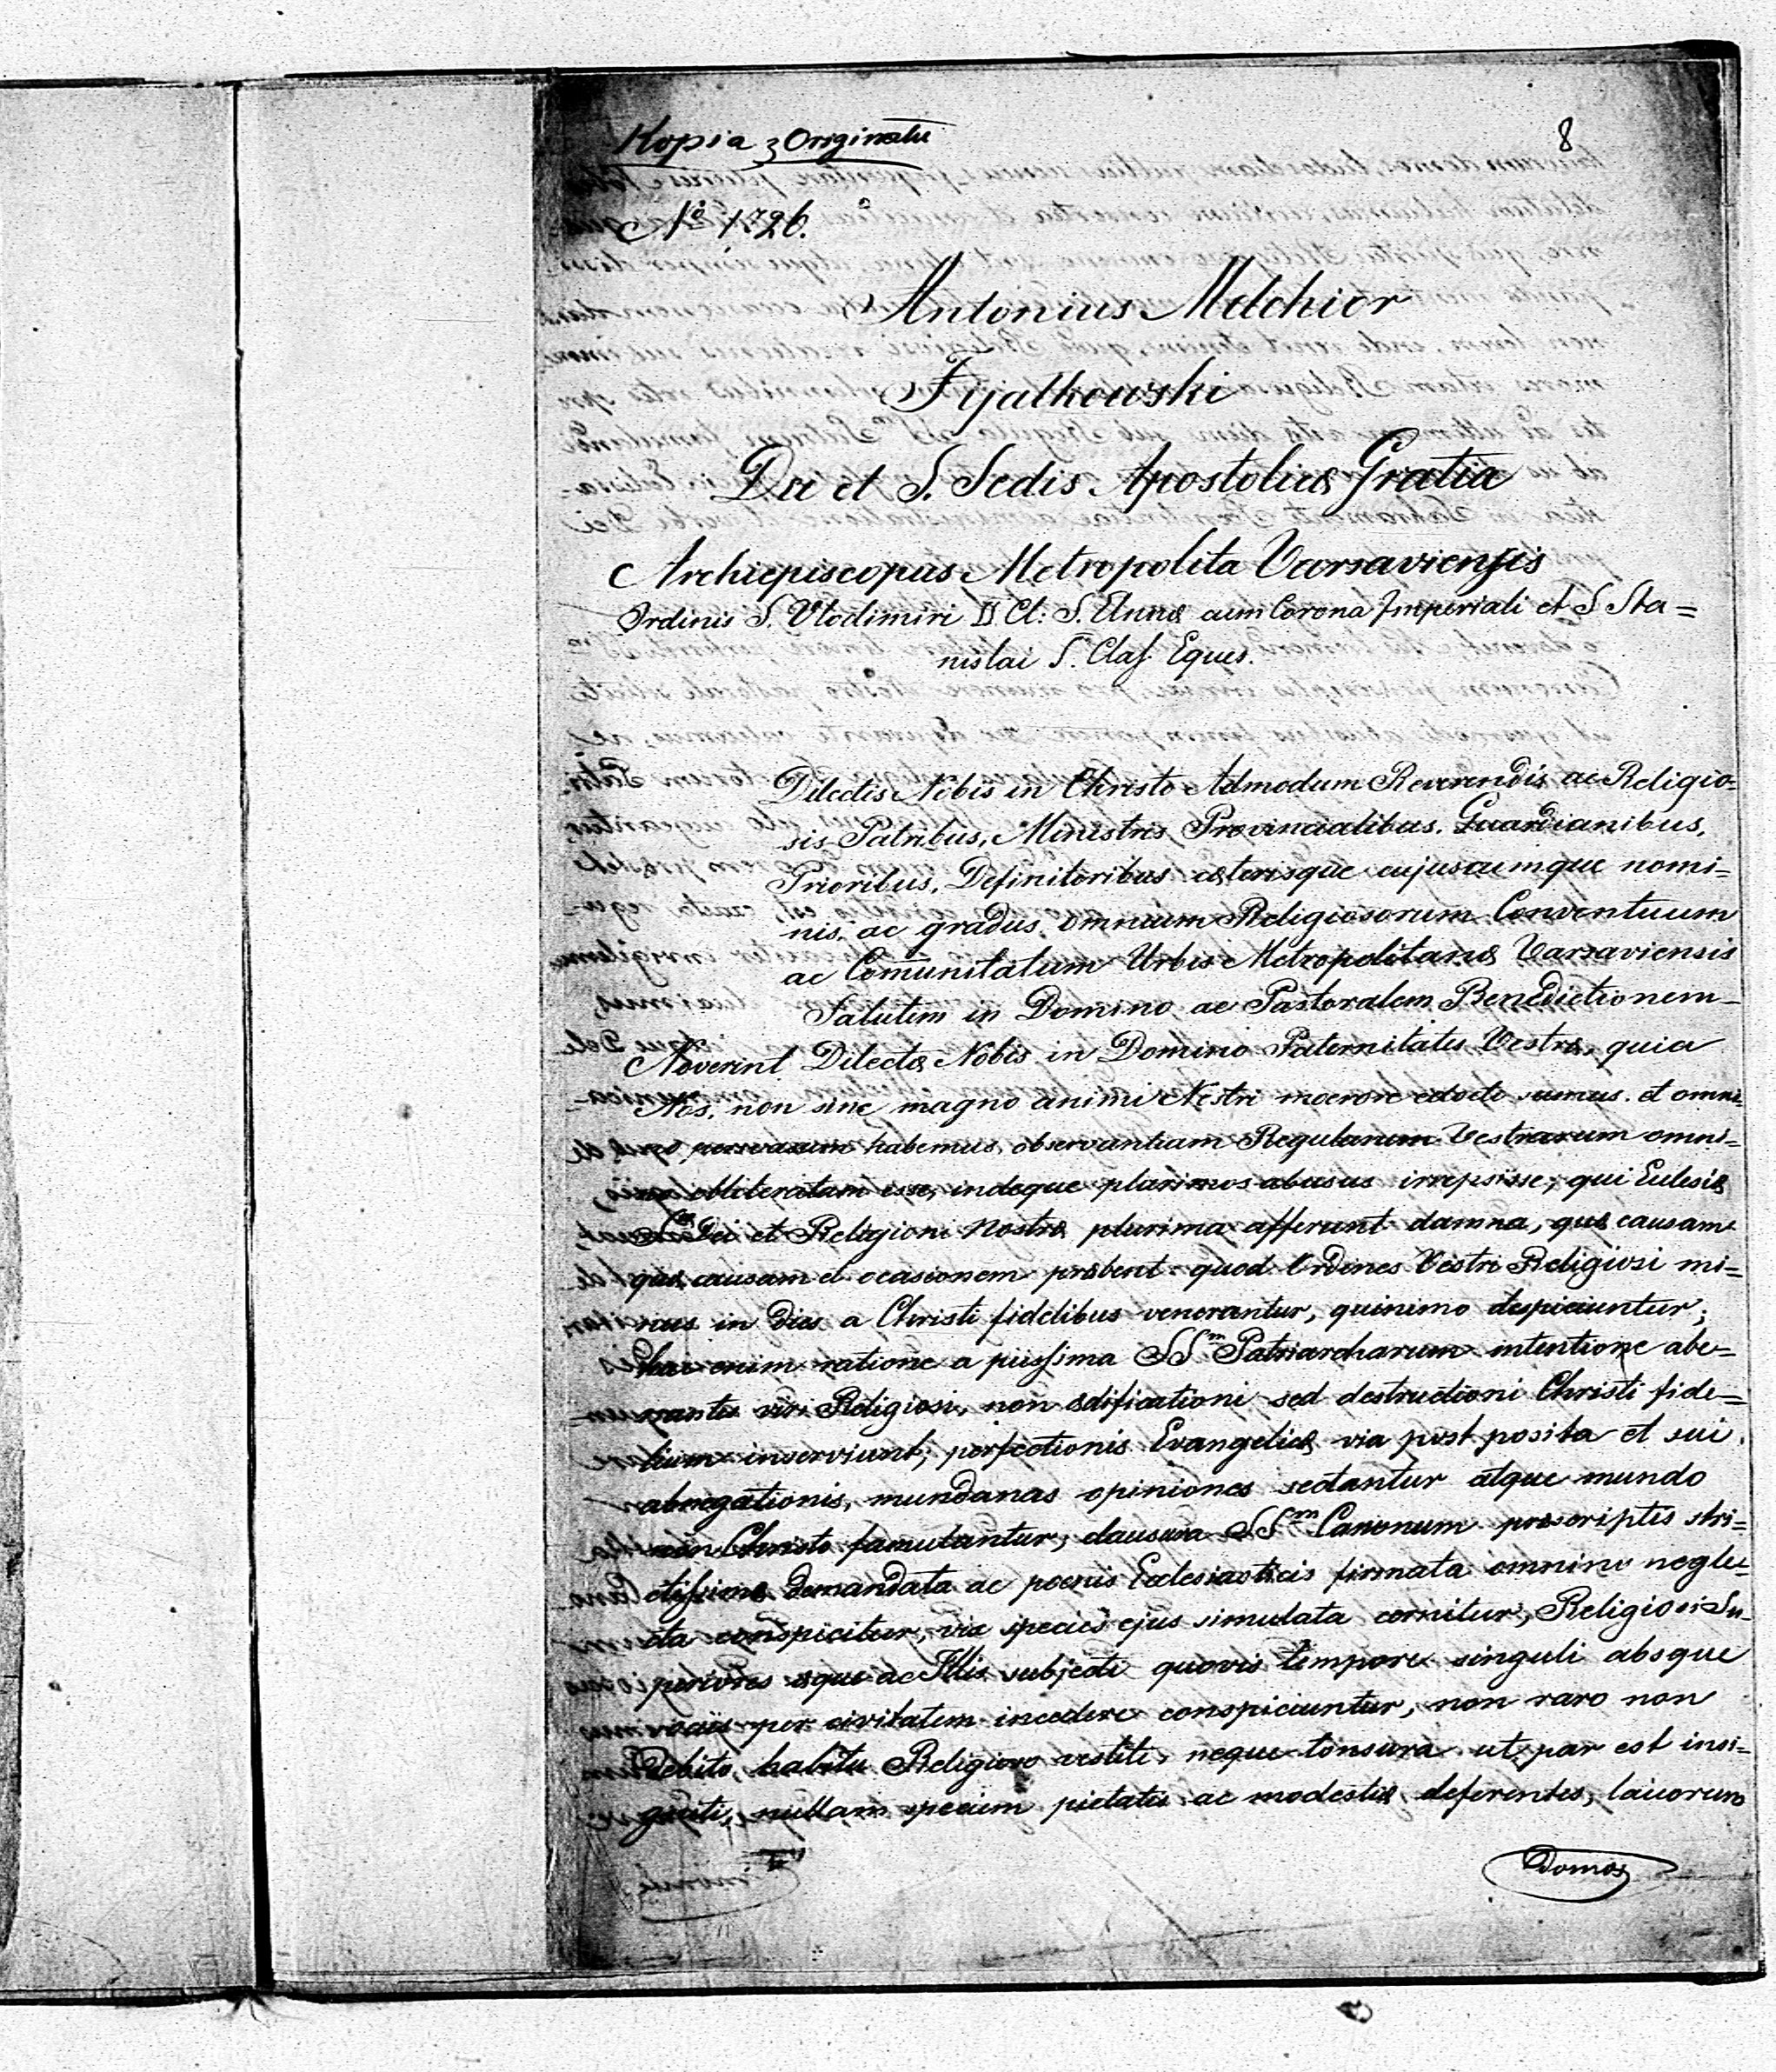 Kopia z Originału
8
No 1726.
Antonius Melchior
Fijałkowski
Dei et S. Sedis Apostolicæ Gratia
Archiepiscopus Metropolita Varsaviensis
Ordinis S. Vlodimiri II Cl: S. Annæ cum Corona Imperiali et S Sta=
nislai S. Claſ. Eques.
Dilectis Nobis in Christo Admodum Reverendis ac Religio=
sis Patribus, Ministris Provincialibus, Guardianibus,
Prioribus, Definitoribus cæterisque cujuscumque nomi=
nis, ac gradus, omnium Religiosorum Conventuum
ac Com̄unitatum Urbis Metropolitanæ Varsaviensis
Salutem in Domino ac Pastoralem Benedictionem
Noverint Dilectæ Nobis in Domino Paternitates Vestræ, quia
Nos, non sine magno animi Nostri moerore edocto sumus et omni=
persvasum habemus, observantiam Regularum Vestrarum omni=
obliteratam esse, indeque plurimos abusus irrepsisse, qui Eclesiæ
Dei et Religioni Nostræ plurima afferunt damna, quæ causam
quæ causam et ocasionem præbent quod Ordines Vestri Religiosi mi=
nus in dies a Christi fidelibus venerantur, quinimo despiciuntur;
hac enim ratione a piisſima SSm Patriarcharum intentione abe=
rrantes viri Religiosi, non ædificationi sed destructioni Christi fide=
lium inserviunt, perfectionis Evangelicæ via post posita et sui
abnegationis, mundanas opiniones sectantur atque mundo
non Christo famulantur, clausura SSm Canonum præscriptis stri=
ctisſime demandata ac poenis Ecclesiasticis firmata omnino negle=
cta conspicitur, vix species ejus simulata cernitur, Religiosi Su=
periores æque ac Illis subjecti quovis tempore singuli absque
sociis per civitatem incedere conspiciuntur, non raro non
debito, habitu Religioso vestiti, neque tonsura ut par est insi=
gniti, nullam speciem pietatis ac modestiæ deferentes, laicorum
Domos